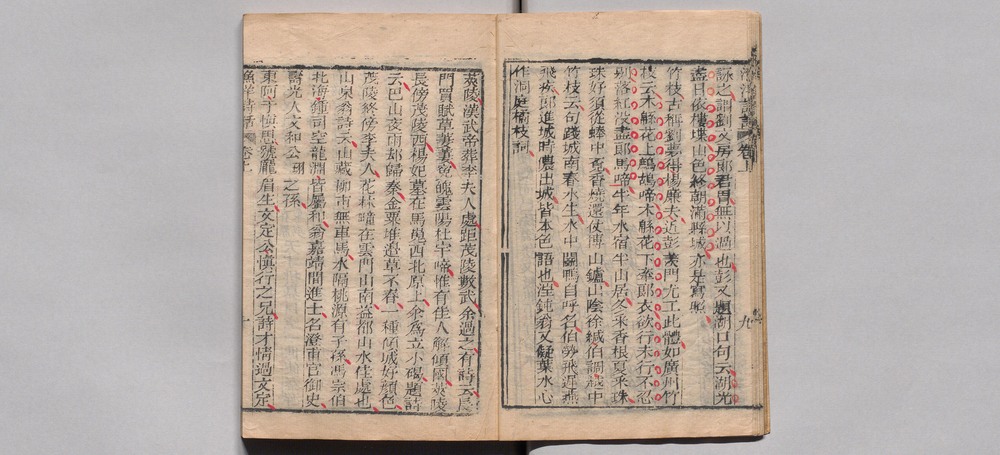 漁洋詩話 卷上 九
詠之謂劉文房郎君胄無以過也彭又題湖口句云湖光
盡日依樓堞山色終朝滿縣城亦是寫照
竹枝古稱劉夢得楊廉夫近彭羨門尤工此體如廣州竹
枝云木緜花上鷓鴣啼木緜花下牽郎衣欲行未行不忍
別落紅沒盡郎馬啼半年水宿半山居冬采香根夏采珠
珠好須從蚌中覓香燒還仗博山鑪山陰徐緘伯調越中
竹枝云句踐城南春水生水中鬭鴨自呼名伯勞飛遲燕
飛疾郎進城時儂出城皆本色語也鈍翁又擬葉水心
作洞庭橘枝詞
英陵漢武帝葬李夫人處距茂陵數武余過之有詩云長
門買賦草萋萋魄雲陽杜宇啼惟有佳人解傾國英陵
長傍茂陵西楊妃墓在馬嵬西北原上余為立小碣題詩
云巴山夜雨却歸秦金粟堆邊草不春一種傾城好顏色
茂陵終傍李夫人花林疃在雲門山南益都山水佳處也
山泉翁詩云山藏柳市無車馬水隔桃源有子孫馮宗伯
北海鍾司空龍淵皆屬和翁嘉靖間進士名澄甫官御史
壽光人文和公珝之孫
東阿于檢思號龐眉生文定公慎行之兄詩才情過文定
漁洋詩話 卷上